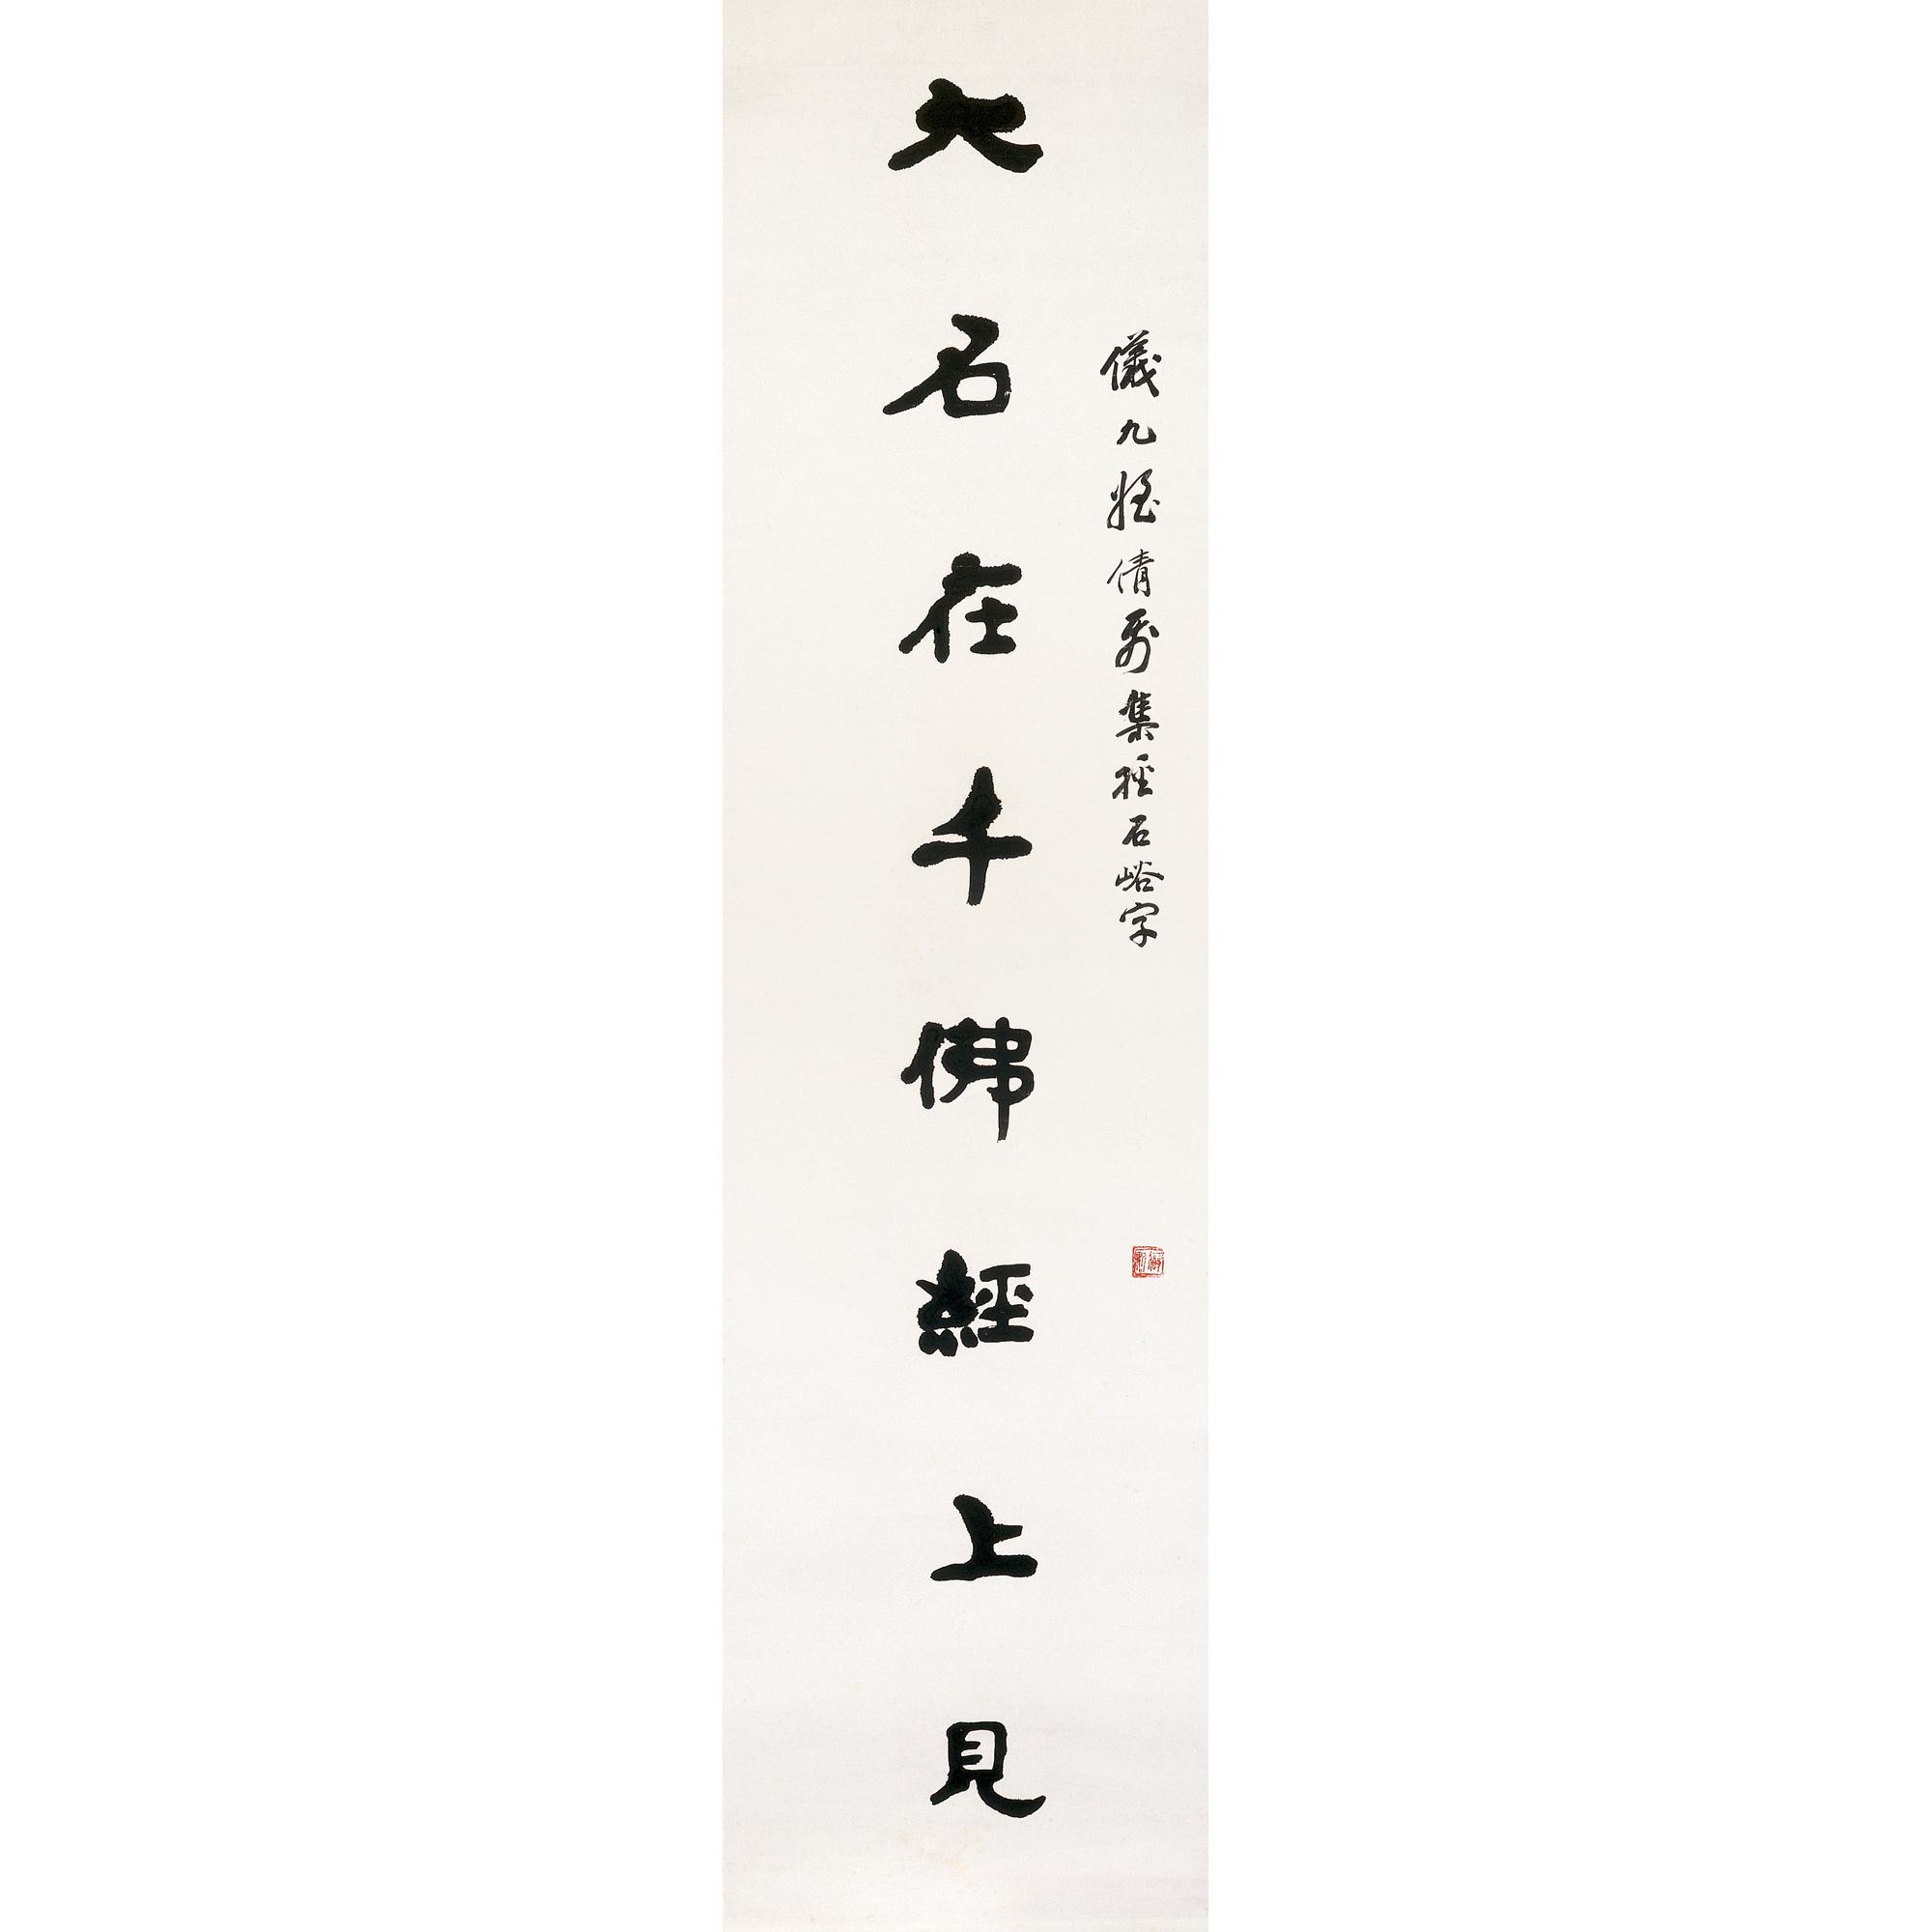 儀九姪倩集經石峪字
大名在千佛經上見